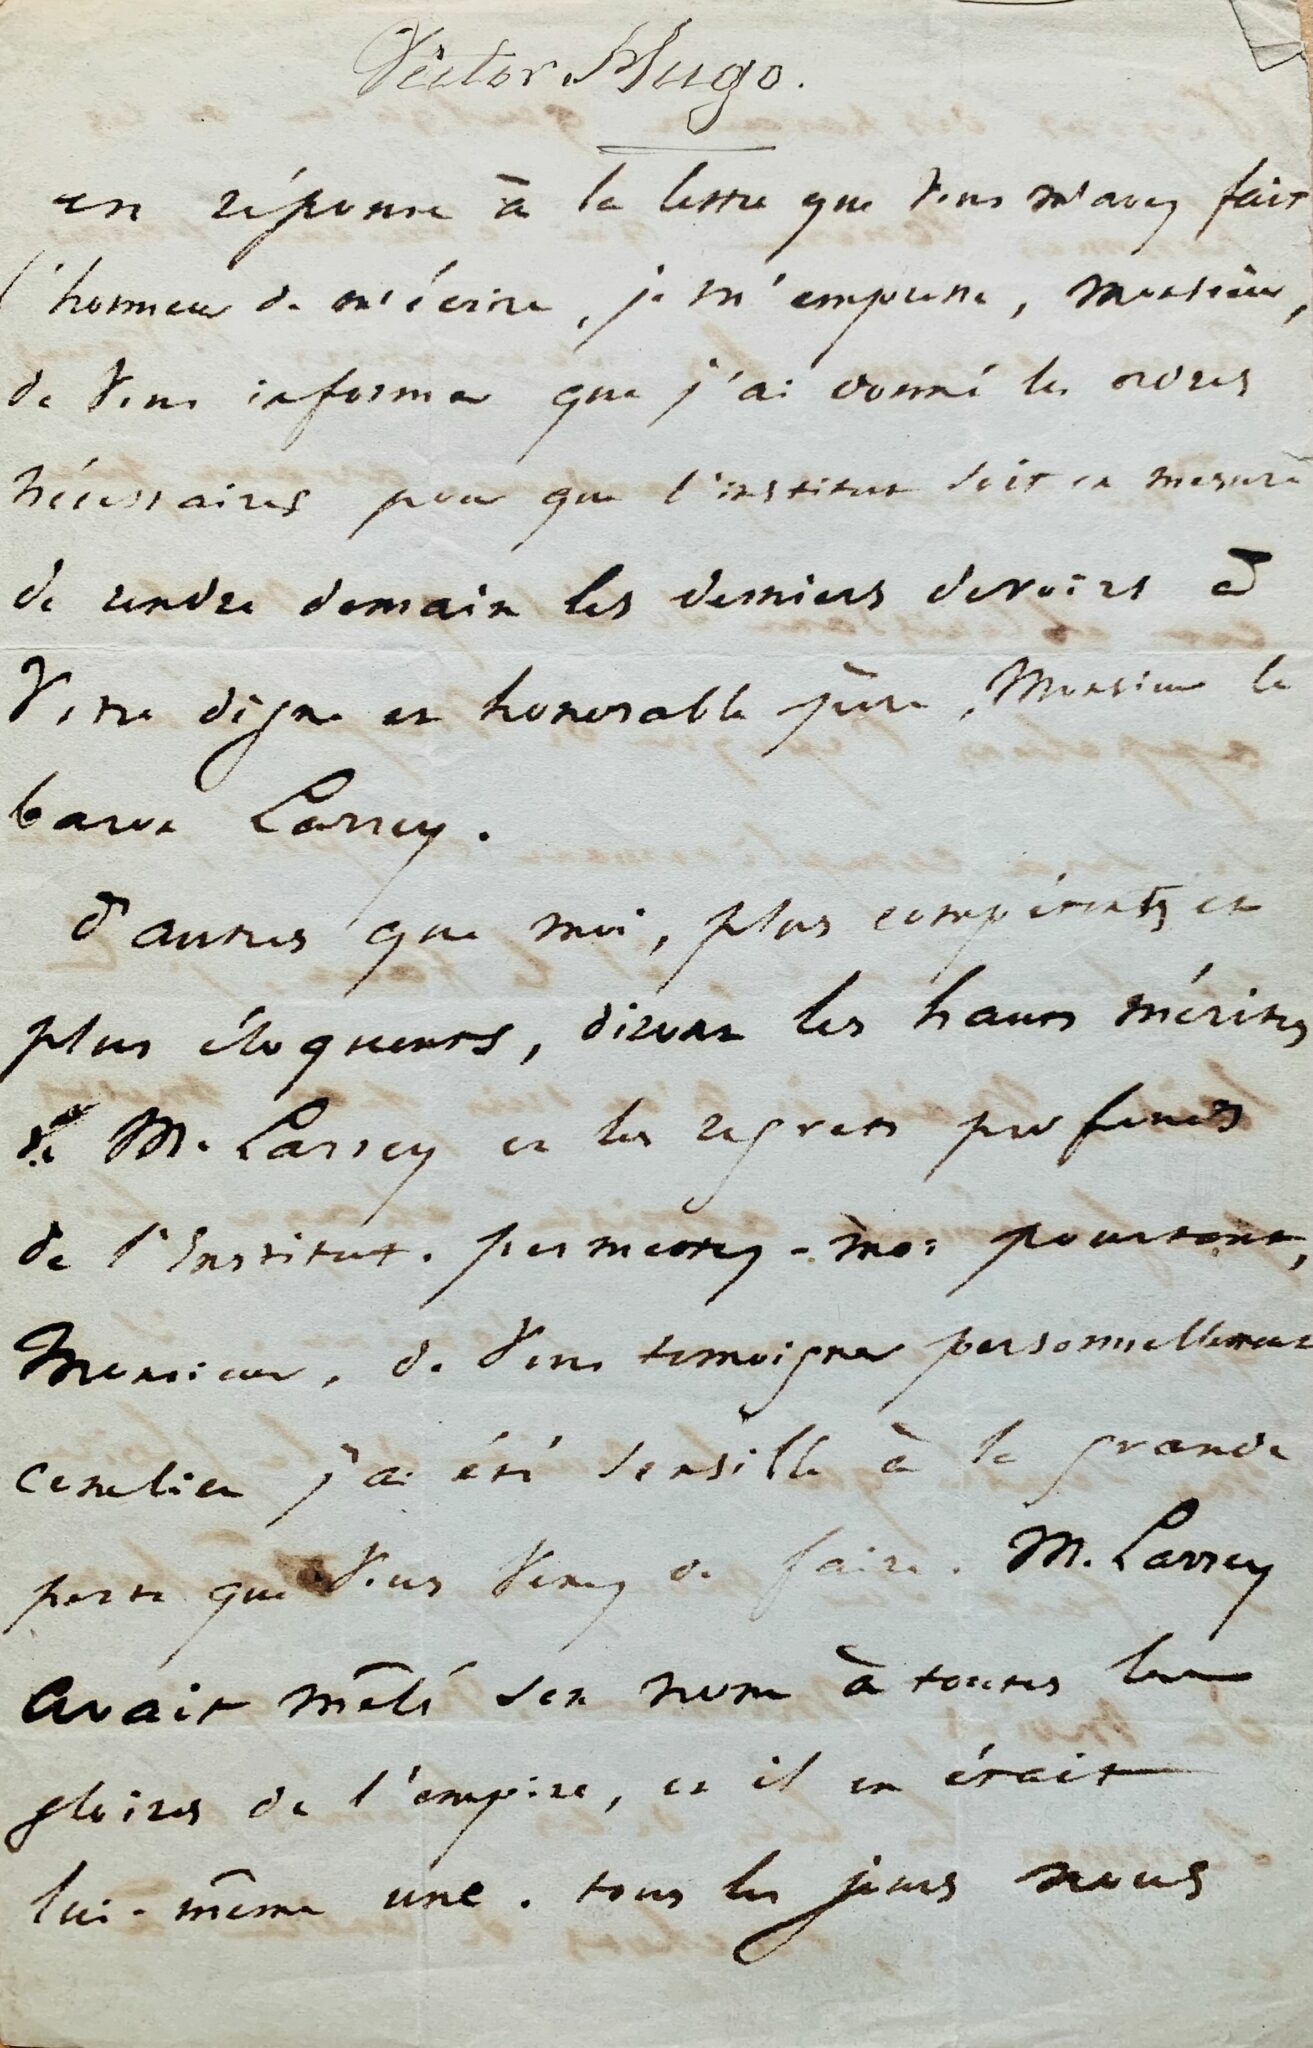 Victor Hugo.
en réponse à la lettre que vous m'avez fait
l'honneur de m'écrire, je m'empresse, Monsieur,
de vous informer que j'ai donné les ordres
nécessaires pour que l'institut soit en mesure
de rendre demain les derniers devoirs à
votre digne et honorable père, Monsieur le
baron Larrey.
d'autres que moi, plus compétents et
plus éloquents, diront les hauts mérites
de M. Larrey et les regrets profonds
de l'Institut. permettez-moi pourtant,
Monsieur, de vous temoigner personnellement
combien j'ai été sensible à la grande
perte que vous venez de faire. M. Larrey
avait mêlé son nom à toutes les
gloires de l'empire, et il en était
lui-même une. tous les jours nous